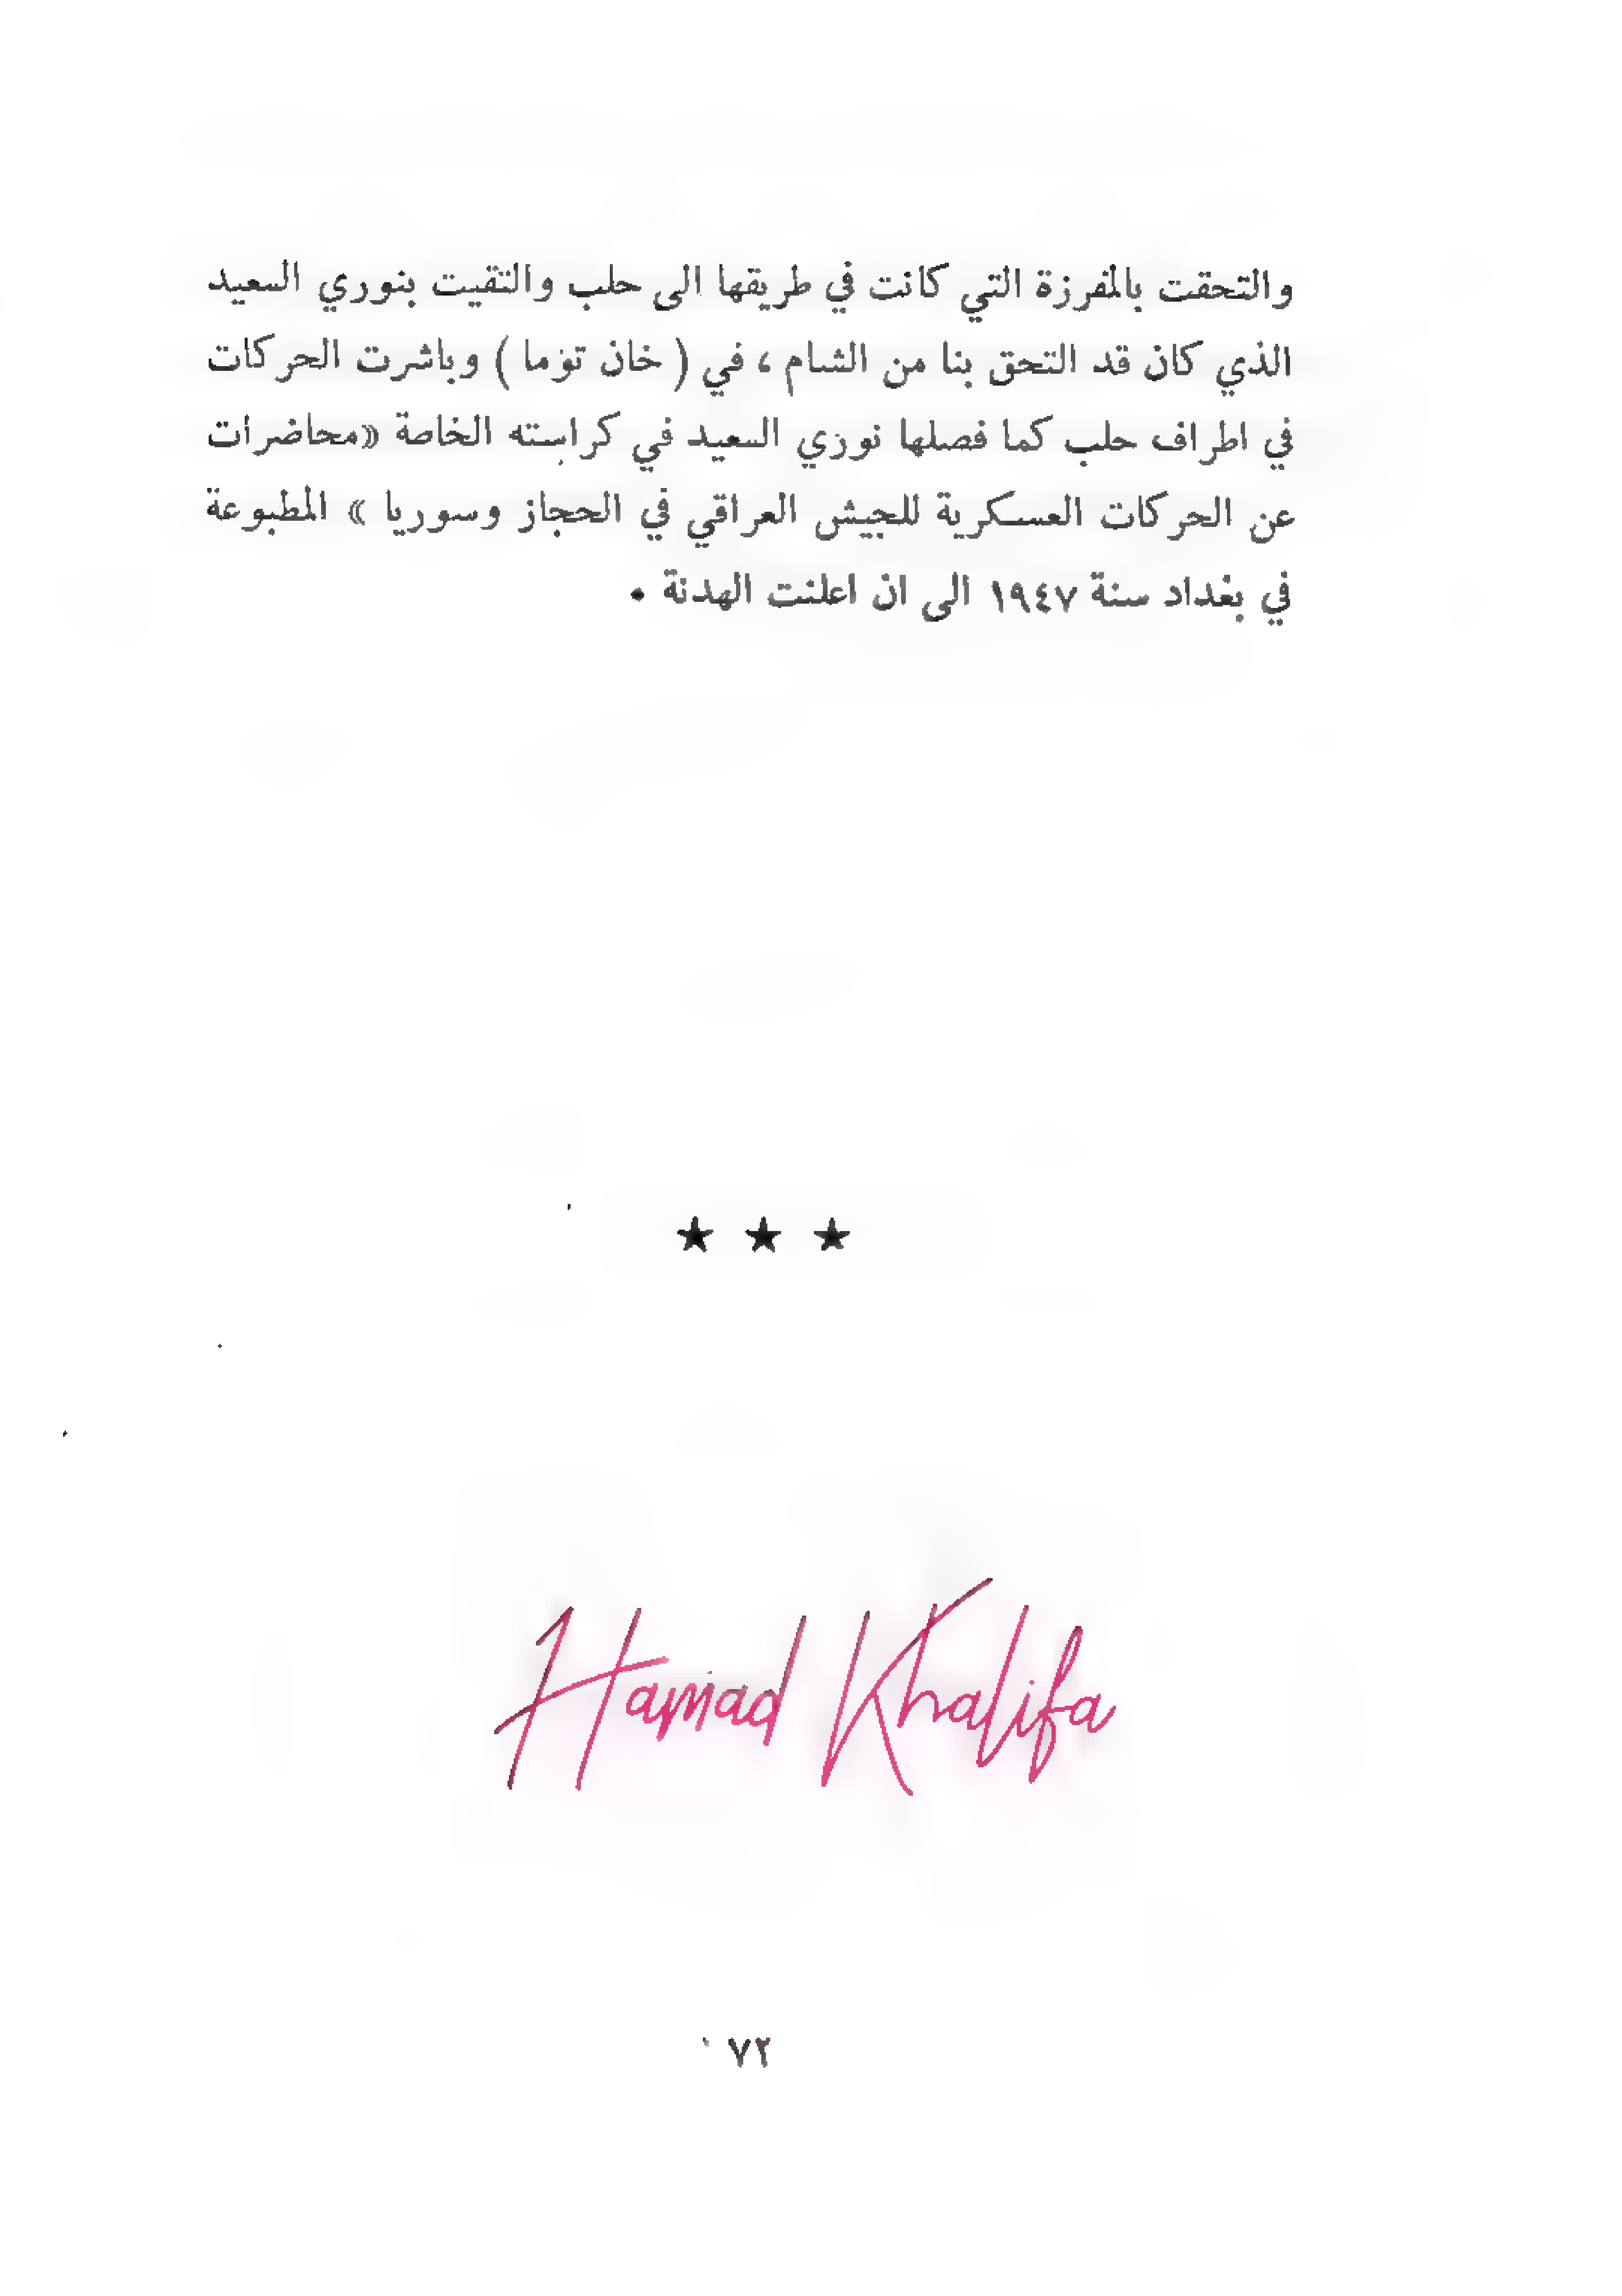 والتحقت بالمفرزة التي كانت في طريقها الى حلب والتقيت بنوري السعيد
الذي كان قد التحق بنا من الشام ، في ( خان توما ) وباشرت الحركات
في اطراف حلب كما فصلها نوري السعيد في كراسته الخاصة «محاضرات
عن الحركات العسكرية للجيش العراقي في الحجاز وسوريا » المطبوعة
في بغداد سنة ١٩٤٧ الى ان اعلنت الهدنة .
★ ★ ★
Hamad Khalifa
٧٢